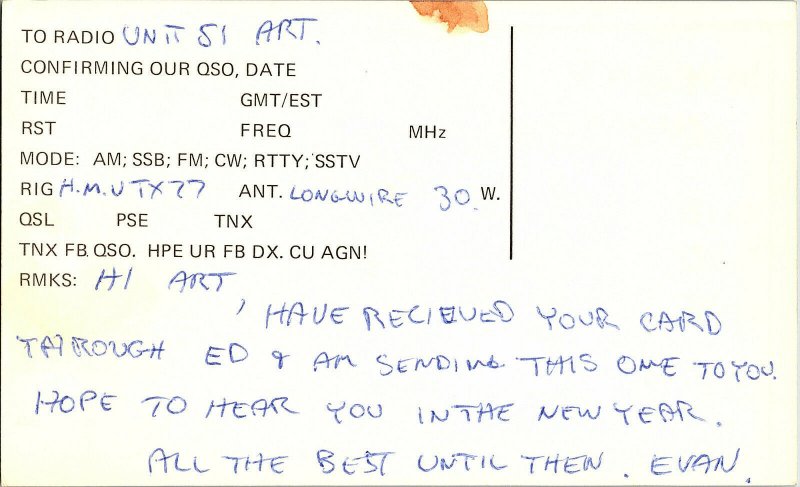 TO RADIO UNIT 51 ART.
CONFIRMING OUR QSO, DATE
TIME GMT/EST
RST FREQ MHz
MODE: AM; SSB; FM; CW; RTTY; SSTV
RIG H.M.V TX77 ANT. LONGWIRE 30 W.
QSL PSE TNX
TNX FB QSO. HPE UR FB DX. CU AGN!
RMKS: HI ART
, HAVE RECIEVED YOUR CARD
THROUGH ED & AM SENDING THIS ONE TO YOU.
HOPE TO HEAR YOU IN THE NEW YEAR.
ALL THE BEST UNTIL THEN. EVAN.